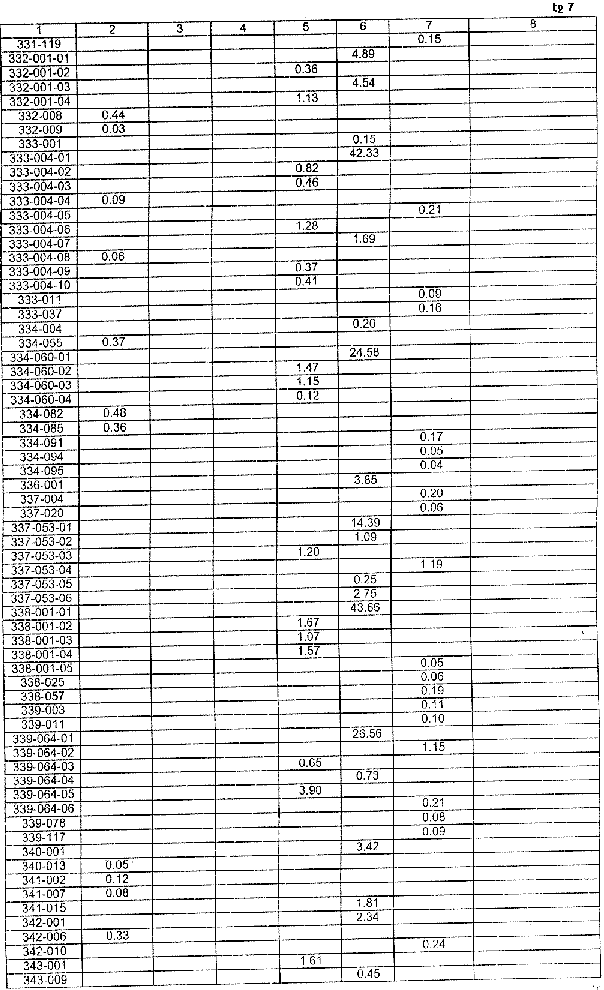 tp 7
1 2 3 4 5 6 7 8
331-119 0.15
332-001-01 4.89
332-001-02 0.36
332-001-03 4.54
332-001-04 1.13
332-008 0.44
332-009 0.03
333-001 0.15
333-004-01 42.33
333-004-02 0.82
333-004-03 0.46
333-004-04 0.09
333-004-05 0.21
333-004-06 1.28
333-004-07 1.69
333-004-08 0.06
333-004-09 0.37
333-004-10 0.41
333-011 0.09
333-037 0.16
334-004 0.20
334-055 0.37
334-060-01 24.58
334-060-02 1.47
334-060-03 1.15
334-060-04 0.12
334-082 0.46
334-085 0.36
334-091 0.17
334-094 0.05
334-095 0.04
336-001 3.85
337-004 0.20
337-020 0.06
337-053-01 14.39
337-053-02 1.09
337-053-03 1.20
337-053-04 1.19
337-053-05 0.25
337-053-06 2.75
338-001-01 43.66
338-001-02 1.67
338-001-03 1.07
338-001-04 1.57
338-001-05 0.05
338-025 0.06
338-057 0.19
339-003 0.11
339-011 0.10
339-064-01 26.56
339-064-02 1.15
339-064-03 0.65
339-064-04 0.73
339-064-05 3.90
339-064-06 0.21
339-078 0.08
339-117 0.09
340-001 3.42
340-013 0.05
341-002 0.12
341-007 0.08
341-015 1.81
342-001 2.34
342-006 0.33
342-010 0.24
343-001 1.61
343-009 0.45